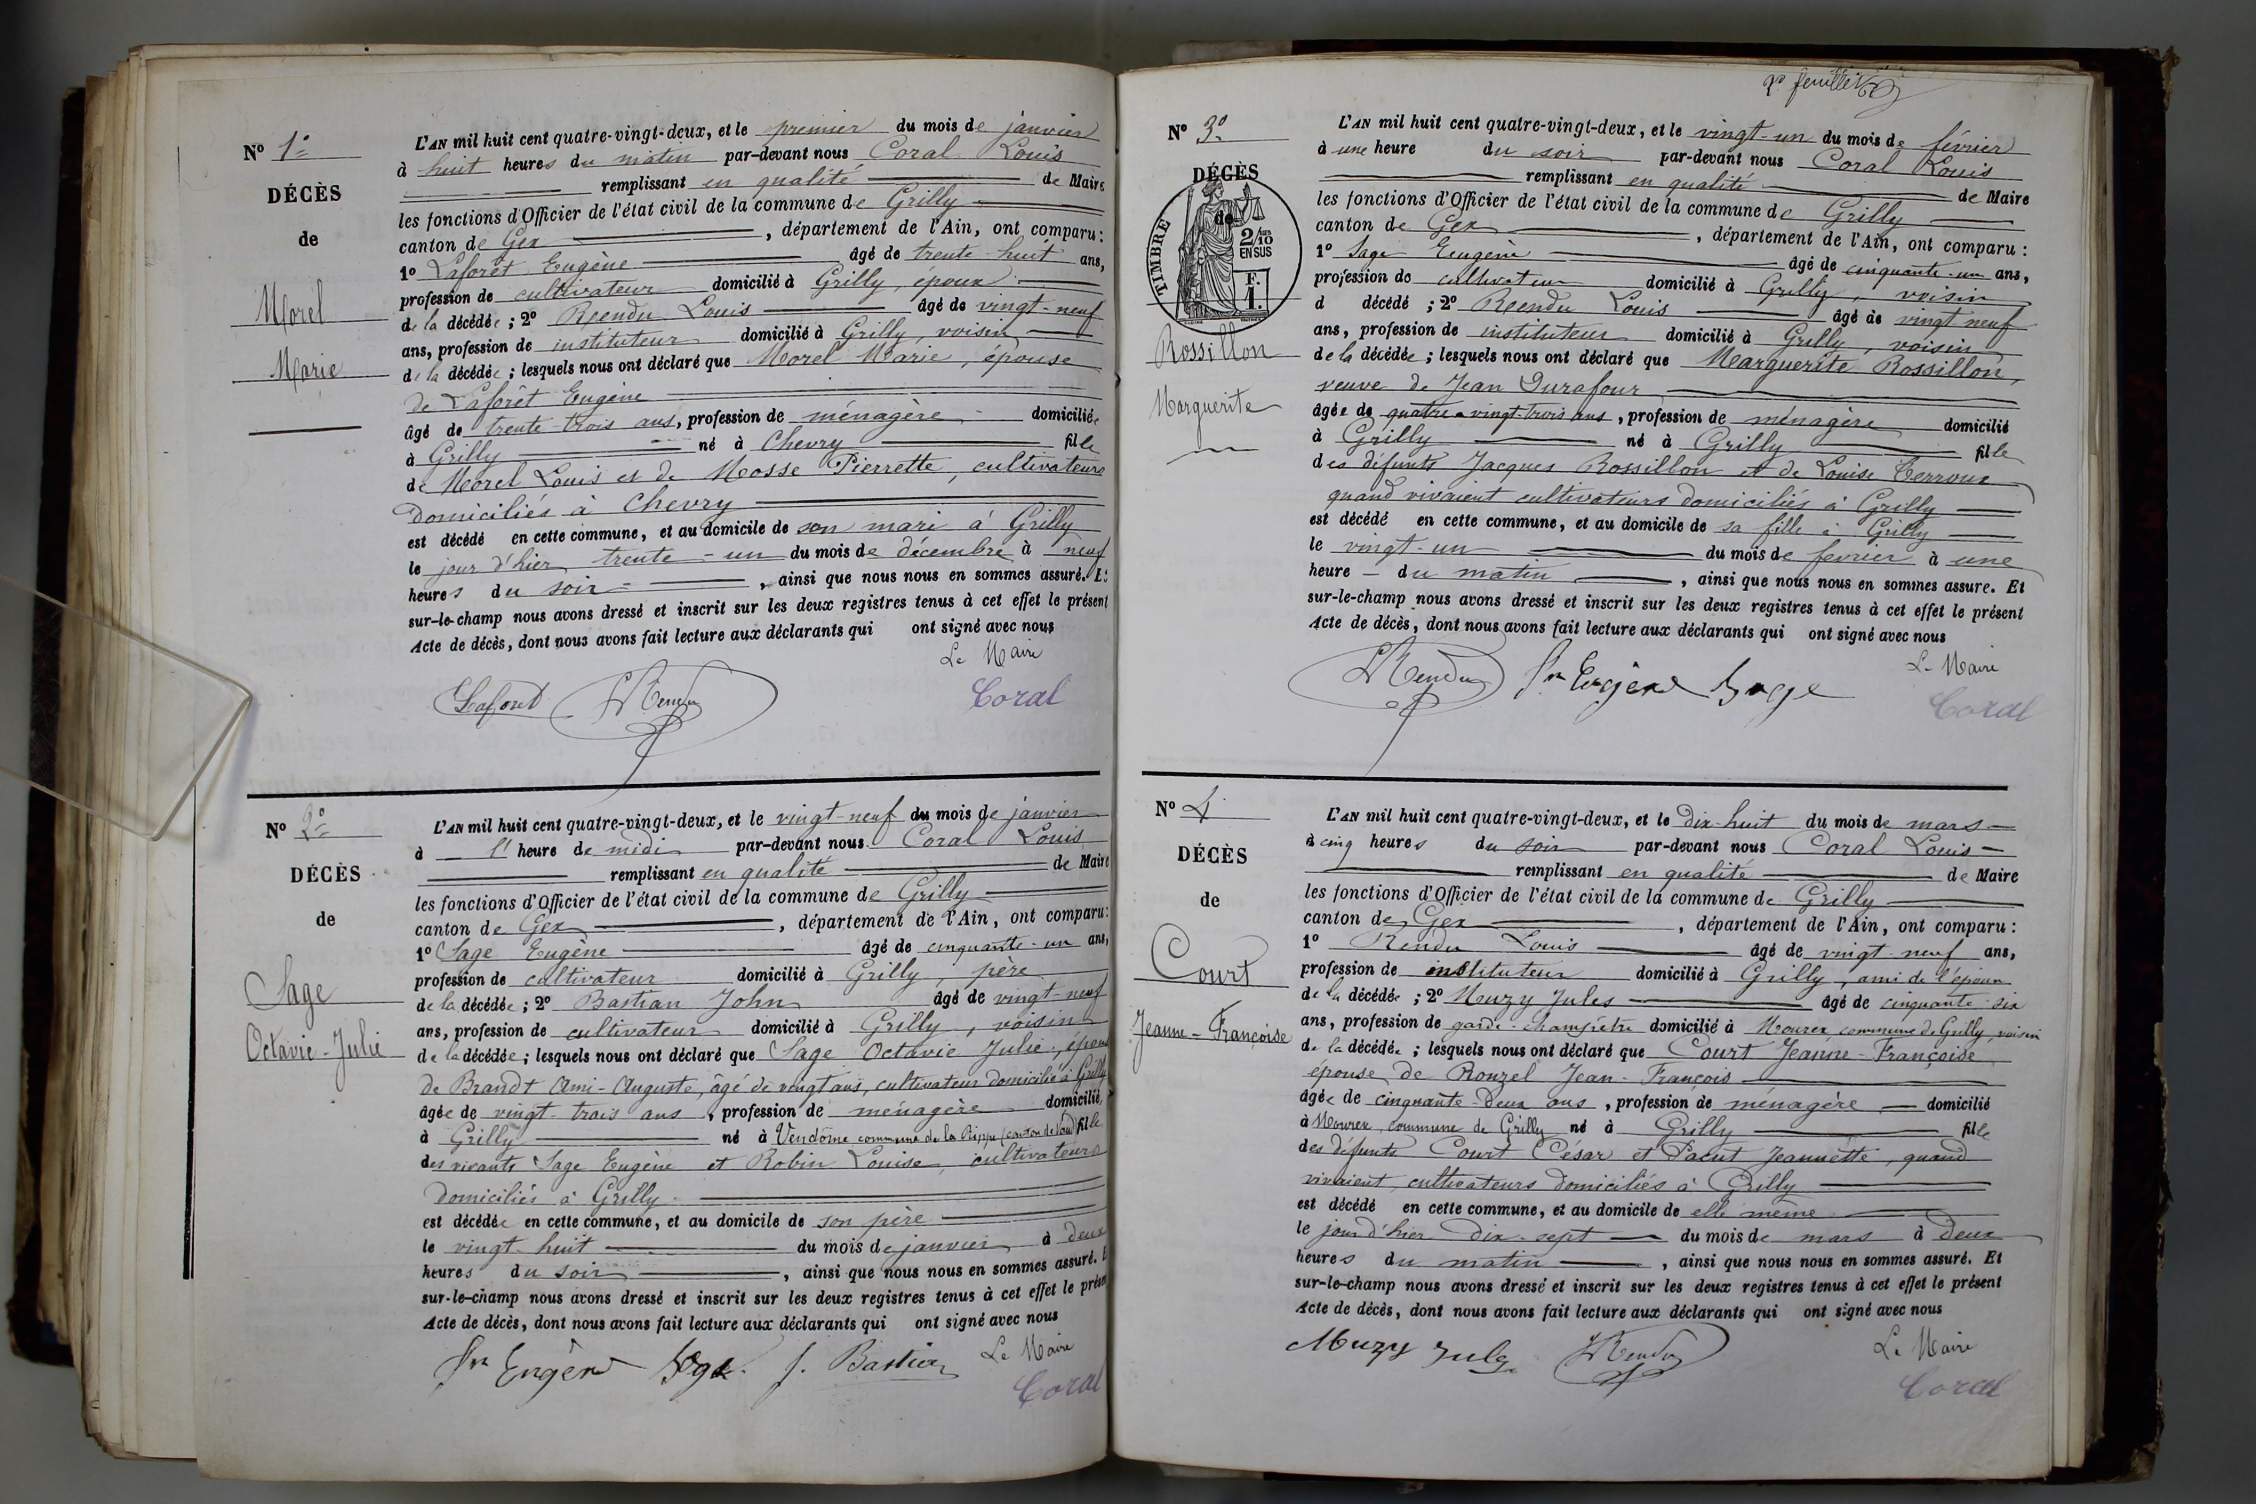 N° 1°
DÉCÈS
de
Morel
Marie
L'AN mil huit cent quatre-vingt-deux, et le premier du mois de janvier
à huit heures du matin par-devant nous Coral Louis
remplissant en qualité de Maire
les fonctions d'Officier de l'état civil de la commune de Grilly
canton de Gex, département de l'Ain, ont comparu :
1° Laforêt Eugène âgé de trente-huit ans,
profession de cultivateur domicilié à Grilly, époux
de la décédée ; 2° Rendu Louis âgé de vingt-neuf
ans, profession de instituteur domicilié à Grilly, voisin
de la décédée ; lesquels nous ont déclaré que Morel Marie, épouse
de Laforêt Eugène
âgé de trente-trois ans, profession de ménagère domiciliée
à Grilly né à Chevry fille
de Morel Louis et de Mosse Pierrette, cultivateurs
domiciliés à Chevry
est décédé en cette commune, et au domicile de son mari à Grilly
le jour d'hier trente-un du mois de décembre à neuf
heures du soir, ainsi que nous nous en sommes assuré. Et
sur-le-champ nous avons dressé et inscrit sur les deux registres tenus à cet effet le présent
Acte de décès, dont nous avons fait lecture aux déclarants qui ont signé avec nous
Le Maire
Laforet LRendu Coral
N° 2°
DÉCÈS
de
Sage
Octavie-Julie
L'AN mil huit cent quatre-vingt-deux, et le vingt-neuf du mois de janvier
à l' heure de midi par-devant nous Coral Louis
remplissant en qualité de Maire
les fonctions d'Officier de l'état civil de la commune de Grilly
canton de Gex, département de l'Ain, ont comparu :
1° Sage Eugène âgé de cinquante-un ans,
profession de cultivateur domicilié à Grilly, père
de la décédée ; 2° Bastian John âgé de vingt-neuf
ans, profession de cultivateur domicilié à Grilly, voisin
de la décédée ; lesquels nous ont déclaré que Sage Octavie Julie, épouse
de Brandt Ami-Auguste, âgé de vingt ans, cultivateur domicilié à Grilly
âgée de vingt-trois ans, profession de ménagère domicilié
à Grilly né à Vendôme commune de la Rippe (canton de Vaud) fille
des vivants Sage Eugène et Robin Louise, cultivateurs
domiciliés à Grilly
est décédée en cette commune, et au domicile de son père
le vingt-huit du mois de janvier à deux
heures du soir, ainsi que nous nous en sommes assuré. E
sur-le-champ nous avons dressé et inscrit sur les deux registres tenus à cet effet le présen
Acte de décès, dont nous avons fait lecture aux déclarants qui ont signé avec nous
Eugène Sage J. Bastian Le Maire
Coral
2e feuillet
N° 3°
DÉCÈS
de
TIMBRE
2/10
EN SUS
F.
1.
Rossillon
Marguerite
L'AN mil huit cent quatre-vingt-deux, et le vingt-un du mois de février
à une heure du soir par-devant nous Coral Louis
remplissant en qualité de Maire
les fonctions d'Officier de l'état civil de la commune de Grilly
canton de Gex, département de l'Ain, ont comparu :
1° Sage Eugène âgé de cinquante-un ans,
profession de cultivateur domicilié à Grilly, voisin
d décédé ; 2° Rendu Louis âgé de vingt neuf
ans, profession de instituteur domicilié à Grilly, voisin
de la décédée ; lesquels nous ont déclaré que Marguerite Rossillon,
veuve de Jean Durafour
âgée de quatre-vingt-trois ans, profession de ménagère domicilié
à Grilly né à Grilly fille
des défunts Jacques Rossillon et de Louise Terroux
quand vivaient cultivateurs domiciliés à Grilly
est décédé en cette commune, et au domicile de sa fille à Grilly
le vingt-un du mois de fevrier à une
heure du matin, ainsi que nous nous en sommes assuré. Et
sur-le-champ nous avons dressé et inscrit sur les deux registres tenus à cet effet le présent
Acte de décès, dont nous avons fait lecture aux déclarants qui ont signé avec nous
LRendu Eugène Sage Le Maire
Coral
N° 4
DÉCÈS
de
Court
Jeanne-Françoise
L'AN mil huit cent quatre-vingt-deux, et le dix-huit du mois de mars
à cinq heures du soir par-devant nous Coral Louis
remplissant en qualité de Maire
les fonctions d'Officier de l'état civil de la commune de Grilly
canton de Gex, département de l'Ain, ont comparu :
1° Rendu Louis âgé de vingt neuf ans,
profession de instituteur domicilié à Grilly, ami de l'époux
de la décédée ; 2° Muzy Jules âgé de cinquante-six
ans, profession de garde-champêtre domicilié à Mourex commune de Grilly, voisin
de la décédée ; lesquels nous ont déclaré que Court Jeanne-Françoise
épouse de Rouzel Jean-François
âgée de cinquante-deux ans, profession de ménagère domicilié
à Mourex, commune de Grilly né à Grilly fille
des défunts Court César et Pacut Jeannette, quand
vivaient cultivateurs domiciliés à Grilly
est décédé en cette commune, et au domicile de elle même
le jour d'hier dix-sept du mois de mars à deux
heures du matin, ainsi que nous nous en sommes assuré. Et
sur-le-champ nous avons dressé et inscrit sur les deux registres tenus à cet effet le présent
Acte de décès, dont nous avons fait lecture aux déclarants qui ont signé avec nous
Muzy Jules LRendu Le Maire
Coral